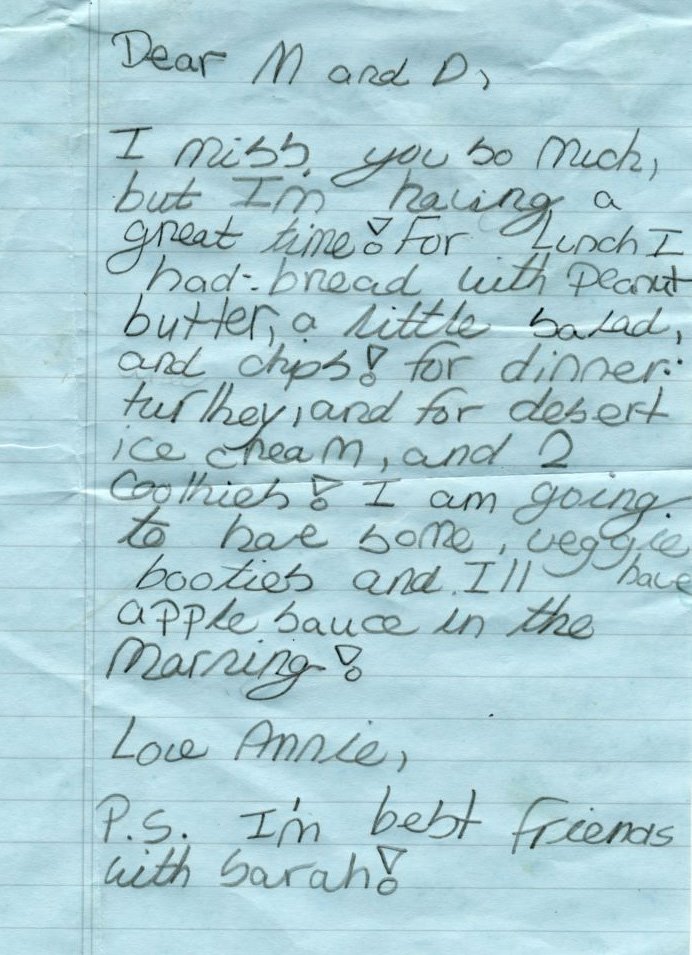 Dear M and D,
I miss you so much,
but Im having a
great time! For Lunch I
had-bread with peanut
butter, a little salad,
and chips! for dinner:
turkey, and for desert
ice cream, and 2
Cookies! I am going
to have some, veggie
booties and I'll have
apple sauce in the
Marning!
Love Annie,
P.S. I'm best friends
with sarah!